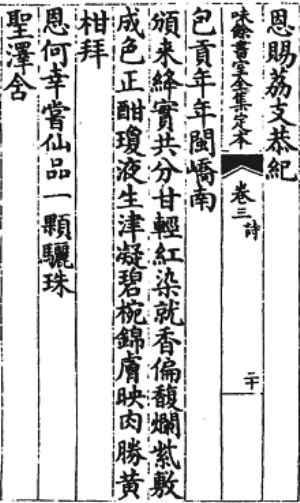 恩賜荔支恭紀
味餘書室全集定本
卷三 詩
二十
包貢年年閩嶠南
頒来絳實共分甘輕紅染就香偏馥爛紫敷
成色正酣瓊液生津凝碧椀錦膚映肉勝黄
柑拜
恩何幸嘗仙品一顆驪珠
聖澤含